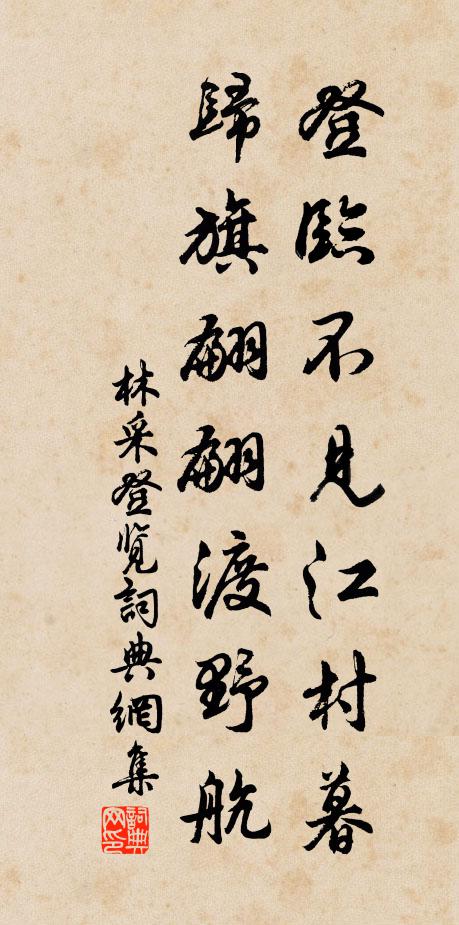 登臨不見江村暮
歸旗翩翩渡野航
林采登覽詞典網集
詞典網印